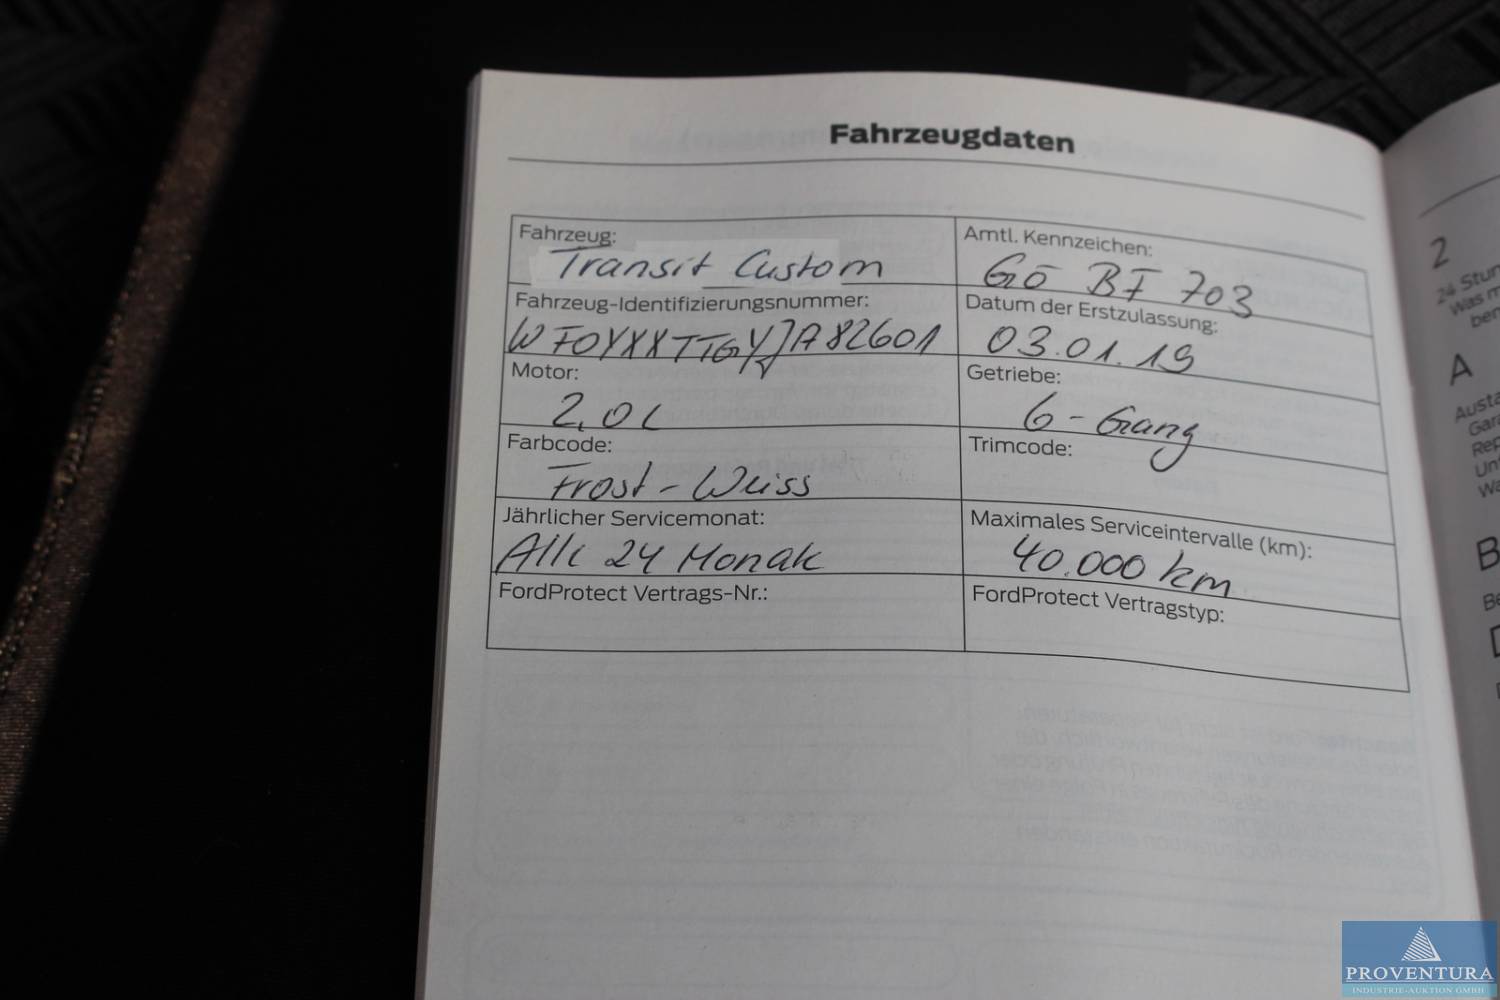 Fahrzeugdaten
Fahrzeug:
Transit Custom
Amtl. Kennzeichen:
GÖ BF 703
Fahrzeug-Identifizierungsnummer:
WF0YXXTTGYJA82601
Datum der Erstzulassung:
03.01.19
Motor:
2,0 L
Getriebe:
6-Gang
Farbcode:
Frost-Weiss
Trimcode:
Jährlicher Servicemonat:
Alle 24 Monate
Maximales Serviceintervalle (km):
40.000 km
FordProtect Vertrags-Nr.:
FordProtect Vertragstyp:
2
24 Stun
Was m
ber
A
Austa
Gara
Rep
Un
Wa
B
Be
PROVENTURA
INDUSTRIE-AUKTION GMBH